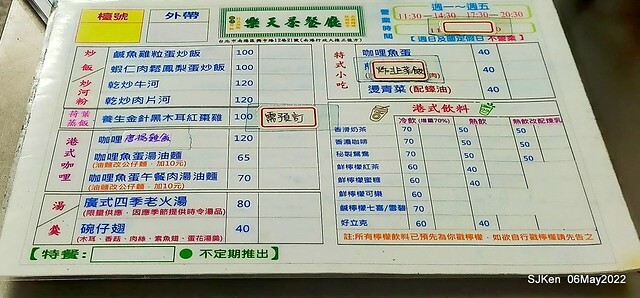 檯號
外帶
樂天茶餐廳
營業時間
週一~週五
11:30－14:30 17:30－20:30
【週日及國定假日 不營業】
炒飯
鹹魚雞粒蛋炒飯 100
蝦仁肉鬆鳳梨蛋炒飯 100
炒河粉
乾炒牛河 120
乾炒肉片河 120
荷葉蒸飯
養生金針黑木耳紅棗雞 100
需預訂
港式咖哩
咖哩 120
咖哩魚蛋湯油麵 65
(油麵改公仔麵，加10元)
咖哩魚蛋午餐肉湯油麵 70
(油麵改公仔麵，加10元)
湯
廣式四季老火湯 80
(限量供應，因應季節提供時令湯品)
羹
碗仔翅 40
(木耳、香菇、肉絲、素魚翅、蛋花湯羹)
【特餐：
●不定期推出】
特式小吃
咖哩魚蛋 40
40
燙青菜(配蠔油) 40
港式飲料
冷飲(增量70%) 熱飲 熱飲改配煉乳
香滑奶茶 70 50 50
香濃咖啡 70 50 50
秘製鴛鴦 70 50 50
鮮檸檬紅茶 60 40
鮮檸檬蜜糖 60 40
鮮檸檬可樂 60
鹹檸檬七喜/雪碧 70
好立克 60 40 40
註:所有檸檬飲料已預先為你戳檸檬，如欲自行戳檸檬請先告之
SJKen 06May2022